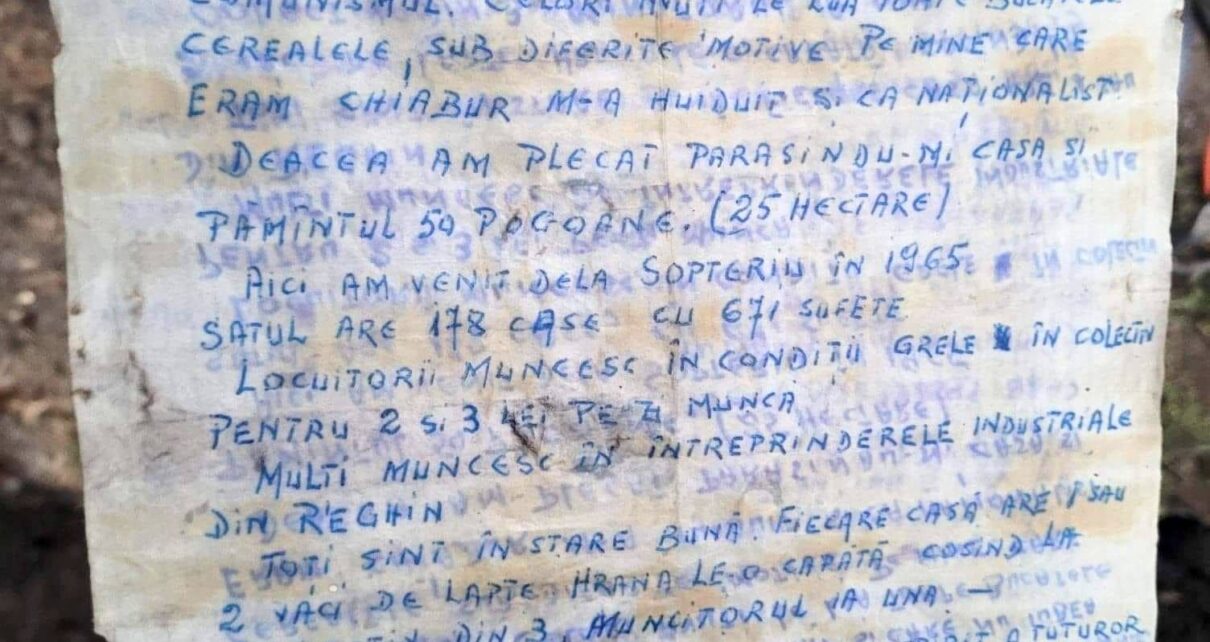 COMUNISMUL. CELORI AVUTI LE LUA TOATE BUCATELE
CEREALELE, SUB DIFERITE MOTIVE PE MINE CARE
ERAM CHIABUR M-A HUIDUIT SI CA NAȚIONALIST.
DEACEA AM PLECAT PARASINDU-MI CASA SI
PAMÎNTUL 50 POGOANE. (25 HECTARE)
AICI AM VENIT DELA SOPTERIU ÎN 1965
SATUL ARE 178 CASE CU 671 SUFETE
LOCUITORII MUNCESC ÎN CONDIȚII GRELE ÎN COLECTIV
PENTRU 2 SI 3 LEI PE ZI MUNCA
MULTI MUNCESC ÎN ÎNTREPRINDERELE INDUSTRIALE
DIN REGHIN
TOȚI SINT ÎN STARE BUNĂ. FIECARE CASĂ ARE 1 SAU
2 VACI DE LAPTE HRANA LE O CAPĂTĂ COSIND LA
DIN 3, MUNCITORUL IA UNA –
TUTUROR